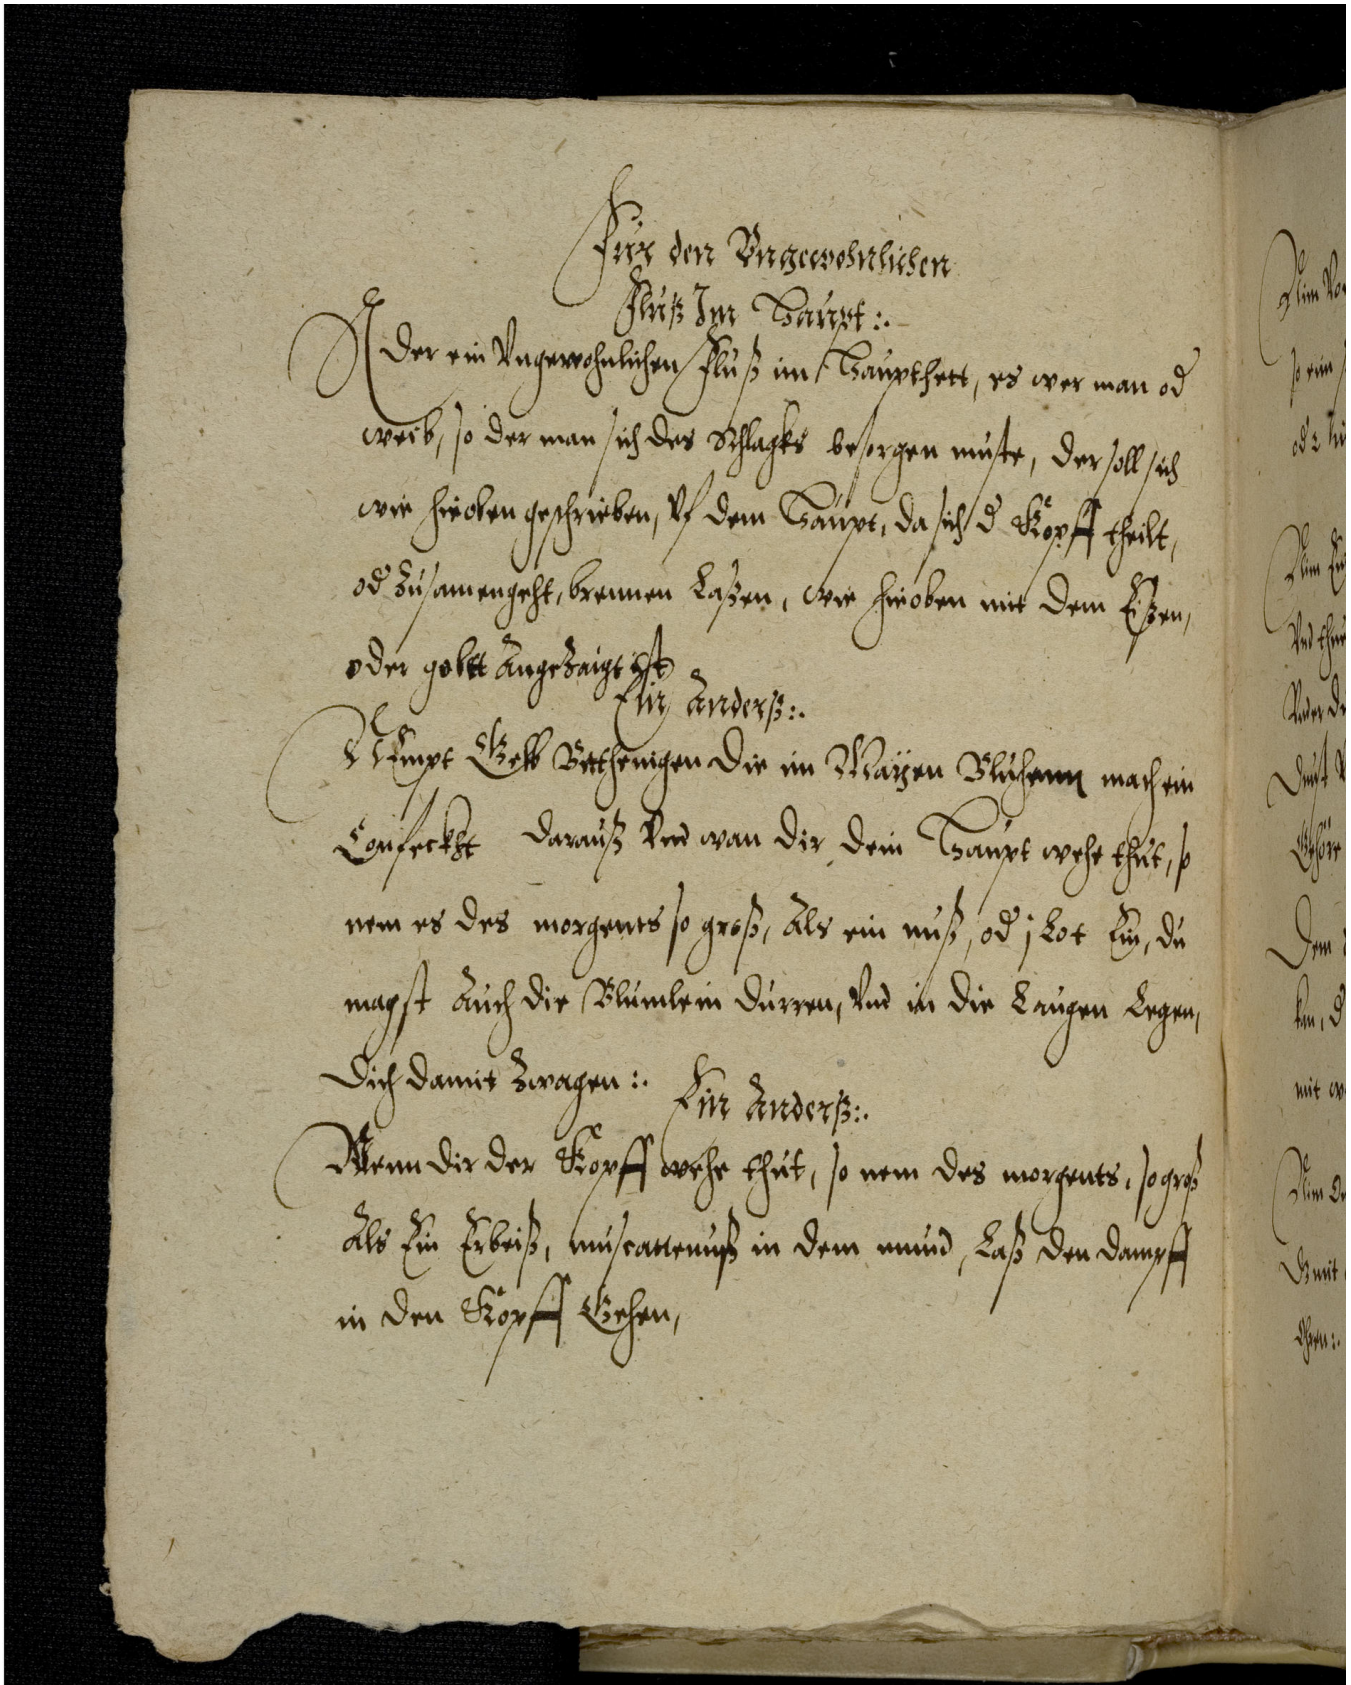 Für den Vngewohnlichen
Fluß Im Haupt :.
Der ein Vngewohnlichen Fluß im Haupt hett, es wer man od
weib, so der man sich des Schlagks besorgen muste, der soll sich
wie hieoben geschrieben, Vf dem Haupt, da sich d Kopff theilt,
od Zusamengeht, brennen Laßen, wie hieoben mit dem Eißen,
oder goltt Angezaigt ist
Ein Anderß :.
Nempt Gelb Bethenigen die im Mayen Bluhenn mach ein
Confeckht darauß Vnd wan dir dein Haupt wehe thut, so
nem es des morgents so groß, Als ein nuß, od j Lot Ein, du
magst Auch die Blumlein durren, Vnd in die Laugen Legen,
Dich damit Zwagen :.
Ein Anderß :.
Wenn dir der Kopff wehe thut, so nem des morgents, so groß
Als Ein Erbeiß, muscattenuß in dem mund, Laß den dampff
in den Kopff Gehen,
Nim
so ein
od
Nim
Vnd
Dem
mit
Nim
mit
Ohren :.